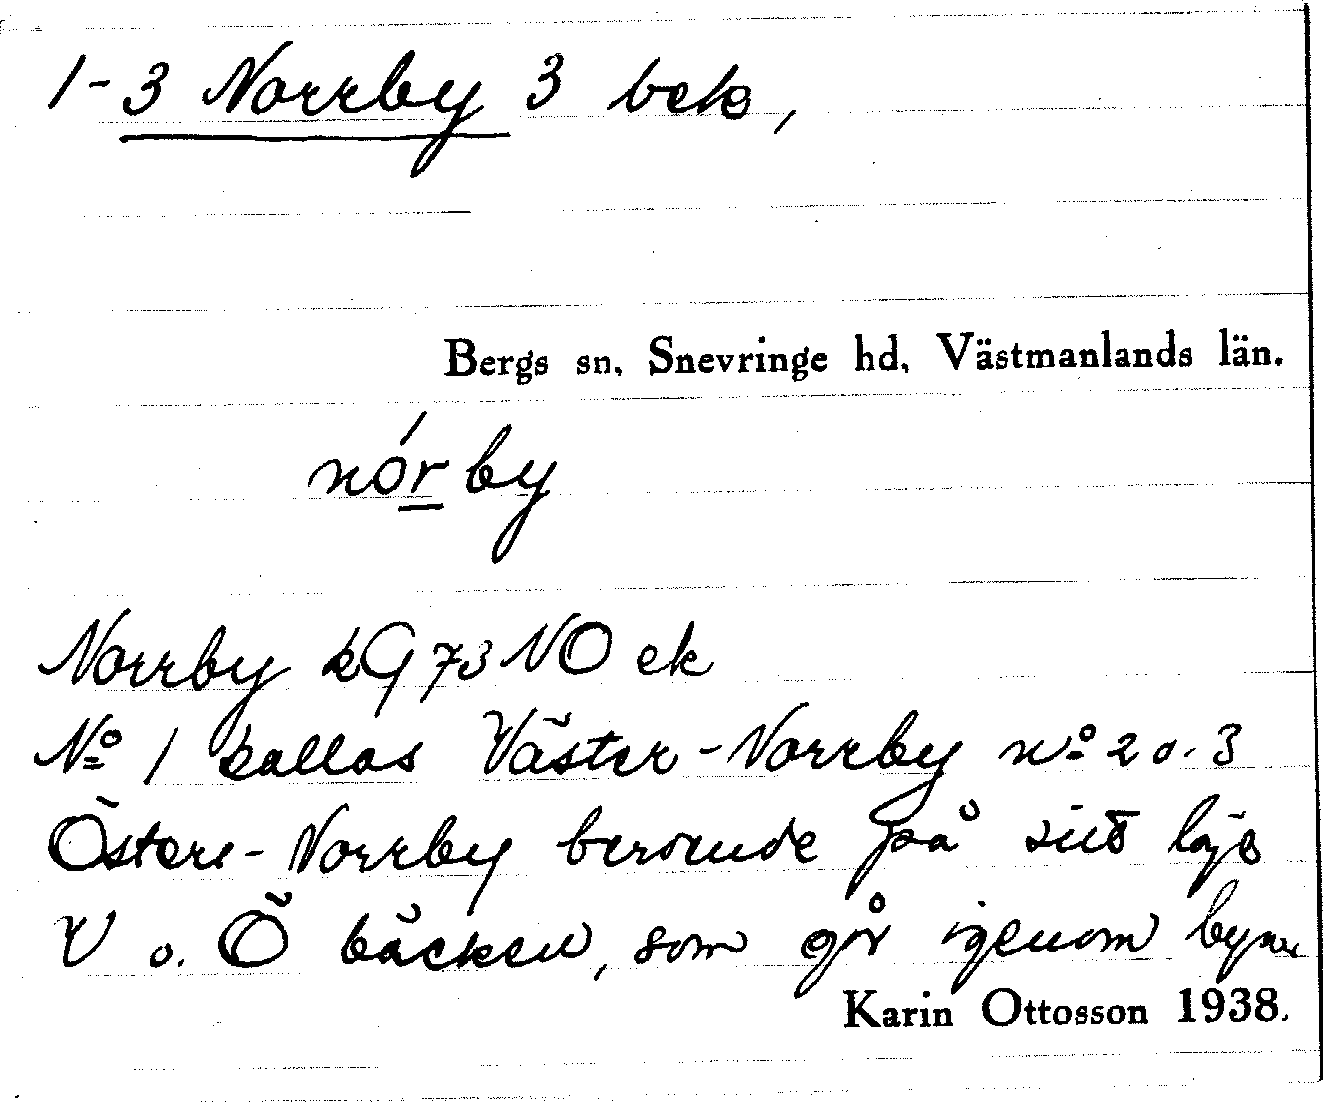 1-3 Norrby 3 bek,
Bergs sn, Snevringe hd, Västmanlands län.
nórby
Norrby kG 73 NO ek
No 1 kallas Väster-Norrby no 2 o. 3
Öster-Norrby beroende på sitt läge
V o. Ö bäcken, som går igenom byn
Karin Ottosson 1938.